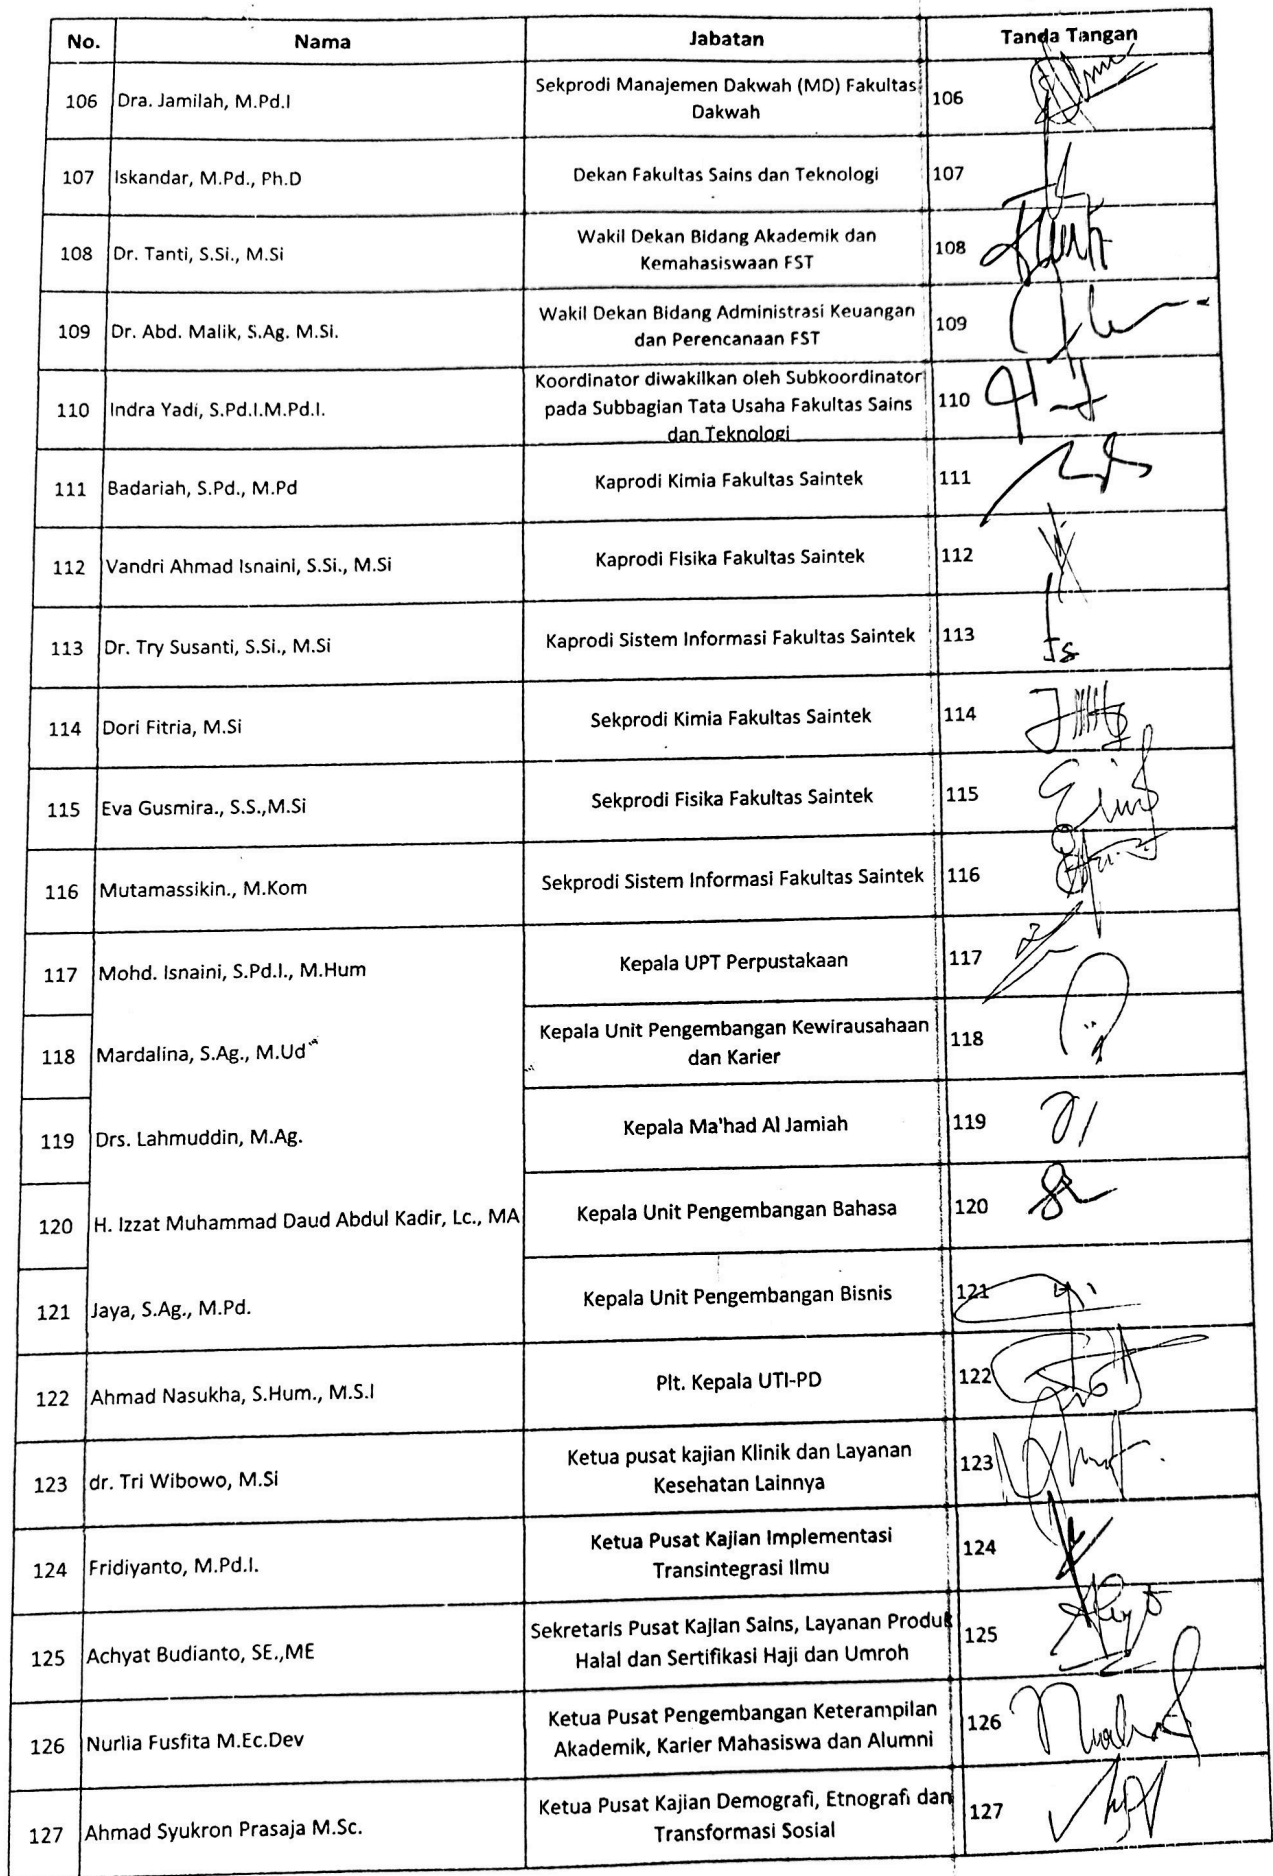 No. Nama Jabatan Tanda Tangan
106 Dra. Jamilah, M.Pd.I Sekprodi Manajemen Dakwah (MD) Fakultas 106
Dakwah
107 Iskandar, M.Pd., Ph.D Dekan Fakultas Sains dan Teknologi 107
108 Dr. Tanti, S.Si., M.Si Wakil Dekan Bidang Akademik dan 108
Kemahasiswaan FST
109 Dr. Abd. Malik, S.Ag. M.Si. Wakil Dekan Bidang Administrasi Keuangan 109
dan Perencanaan FST
110 Indra Yadi, S.Pd.I.M.Pd.I. Koordinator diwakilkan oleh Subkoordinator 110
pada Subbagian Tata Usaha Fakultas Sains
dan Teknologi
111 Badariah, S.Pd., M.Pd Kaprodi Kimia Fakultas Saintek 111
112 Vandri Ahmad Isnaini, S.Si., M.Si Kaprodi Fisika Fakultas Saintek 112
113 Dr. Try Susanti, S.Si., M.Si Kaprodi Sistem Informasi Fakultas Saintek 113
114 Dori Fitria, M.Si Sekprodi Kimia Fakultas Saintek 114
115 Eva Gusmira., S.S.,M.Si Sekprodi Fisika Fakultas Saintek 115
116 Mutamassikin., M.Kom Sekprodi Sistem Informasi Fakultas Saintek 116
117 Mohd. Isnaini, S.Pd.I., M.Hum Kepala UPT Perpustakaan 117
118 Mardalina, S.Ag., M.Ud Kepala Unit Pengembangan Kewirausahaan 118
dan Karier
119 Drs. Lahmuddin, M.Ag. Kepala Ma'had Al Jamiah 119
120 H. Izzat Muhammad Daud Abdul Kadir, Lc., MA Kepala Unit Pengembangan Bahasa 120
121 Jaya, S.Ag., M.Pd. Kepala Unit Pengembangan Bisnis 121
122 Ahmad Nasukha, S.Hum., M.S.I Plt. Kepala UTI-PD 122
123 dr. Tri Wibowo, M.Si Ketua pusat kajian Klinik dan Layanan 123
Kesehatan Lainnya
124 Fridiyanto, M.Pd.I. Ketua Pusat Kajian Implementasi 124
Transintegrasi Ilmu
125 Achyat Budianto, SE.,ME Sekretaris Pusat Kajian Sains, Layanan Produk 125
Halal dan Sertifikasi Haji dan Umroh
126 Nurlia Fusfita M.Ec.Dev Ketua Pusat Pengembangan Keterampilan 126
Akademik, Karier Mahasiswa dan Alumni
127 Ahmad Syukron Prasaja M.Sc. Ketua Pusat Kajian Demografi, Etnografi dan 127
Transformasi Sosial